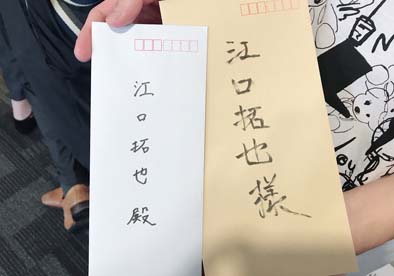 江口拓也殿
江口拓也様